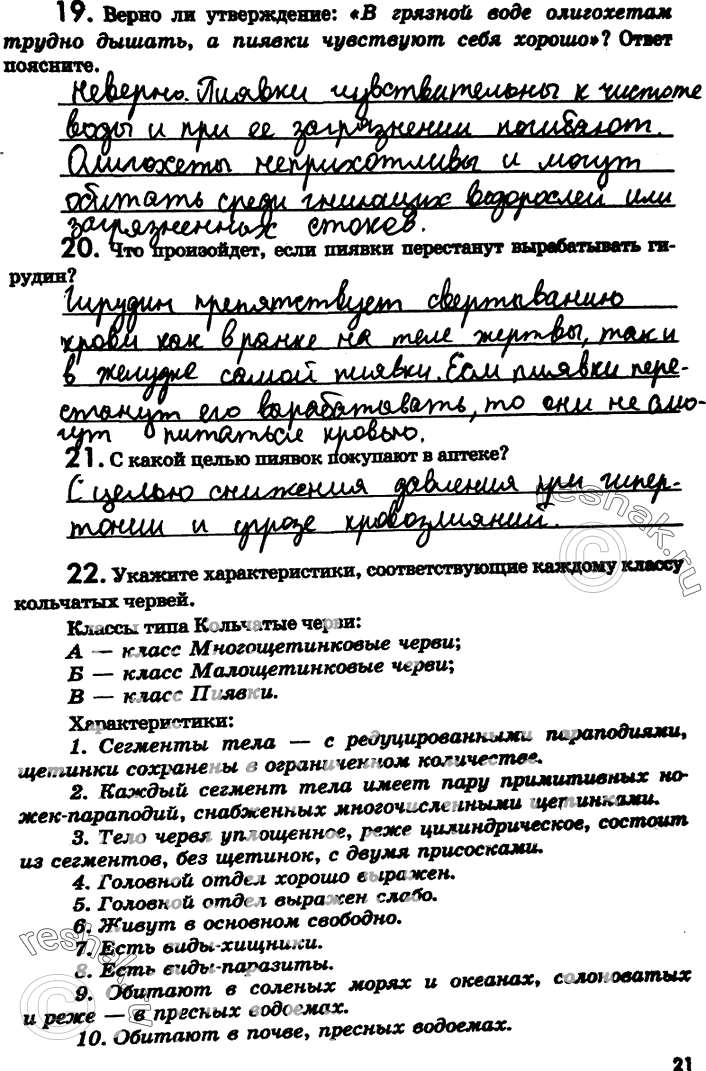 19. Верно ли утверждение: «В грязной воде олигохетам
трудно дышать, а пиявки чувствуют себя хорошо»? Ответ
поясните.
Неверно. Пиявки чувствительны к чистоте
воды и при ее загрязнении погибают.
Олигохеты неприхотливы и могут
обитать среди гниющих водорослей или
загрязненных стоков.
20. Что произойдет, если пиявки перестанут вырабатывать ги-
рудин?
Гирудин препятствует свертыванию
крови как в ранке на теле жертвы, так и
в желудке самой пиявки. Если пиявки пере-
станут его варабатовать, то они не смо-
гут питаться кровью.
21. С какой целью пиявок покупают в аптеке?
С целью снижения давления при гипер-
тонии и угрозе кровоизлияний.
22. Укажите характеристики, соответствующие каждому классу
кольчатых червей.
Классы типа Кольчатые черви:
А — класс Многощетинковые черви;
Б — класс Малощетинковые черви;
В — класс Пиявки.
Характеристики:
1. Сегменты тела — с редуцированными параподиями,
щетинки сохранены в ограниченном количестве.
2. Каждый сегмент тела имеет пару примитивных но-
жек-параподий, снабженных многочисленными щетинками.
3. Тело червя уплощенное, реже цилиндрическое, состоит
из сегментов, без щетинок, с двумя присосками.
4. Головной отдел хорошо выражен.
5. Головной отдел выражен слабо.
6. Живут в основном свободно.
7. Есть виды-хищники.
8. Есть виды-паразиты.
9. Обитают в соленых морях и океанах, солоноватых
и реже — в пресных водоемах.
10. Обитают в почве, пресных водоемах.
21
reshak.ru
reshak.ru